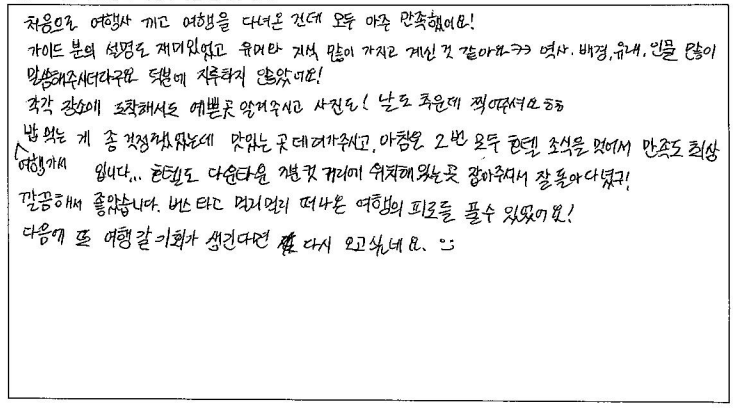 처음으로 여행사 끼고 여행을 다녀온 건데 모두 아주 만족했어요!
가이드 분의 설명도 재미있었고 유머와 지식 많이 가지고 계신 것 같아요ㅋㅋ 역사, 배경, 유래, 인물 많이
말씀해주시더라구요 덕분에 지루하지 않았어요!
각각 장소에 도착해서도 예쁜곳 알려주시고 사진도! 날도 추운데 찍어주셔요ㅎㅎ
밥 먹는 게 좀 걱정했었는데 맛있는 곳 데려가주시고, 아침은 2번 모두 호텔 조식을 먹어서 만족도 최상
여행가서 입니다... 호텔도 다운타운 7분컷 거리에 위치해있는곳 잡아주셔서 잘 돌아다녔구!
깔끔해서 좋았습니다. 버스타고 멀리멀리 떠나온 여행의 피로를 풀수 있었어요!
다음에 또 여행갈 기회가 생긴다면 다시 오고싶네요. :)